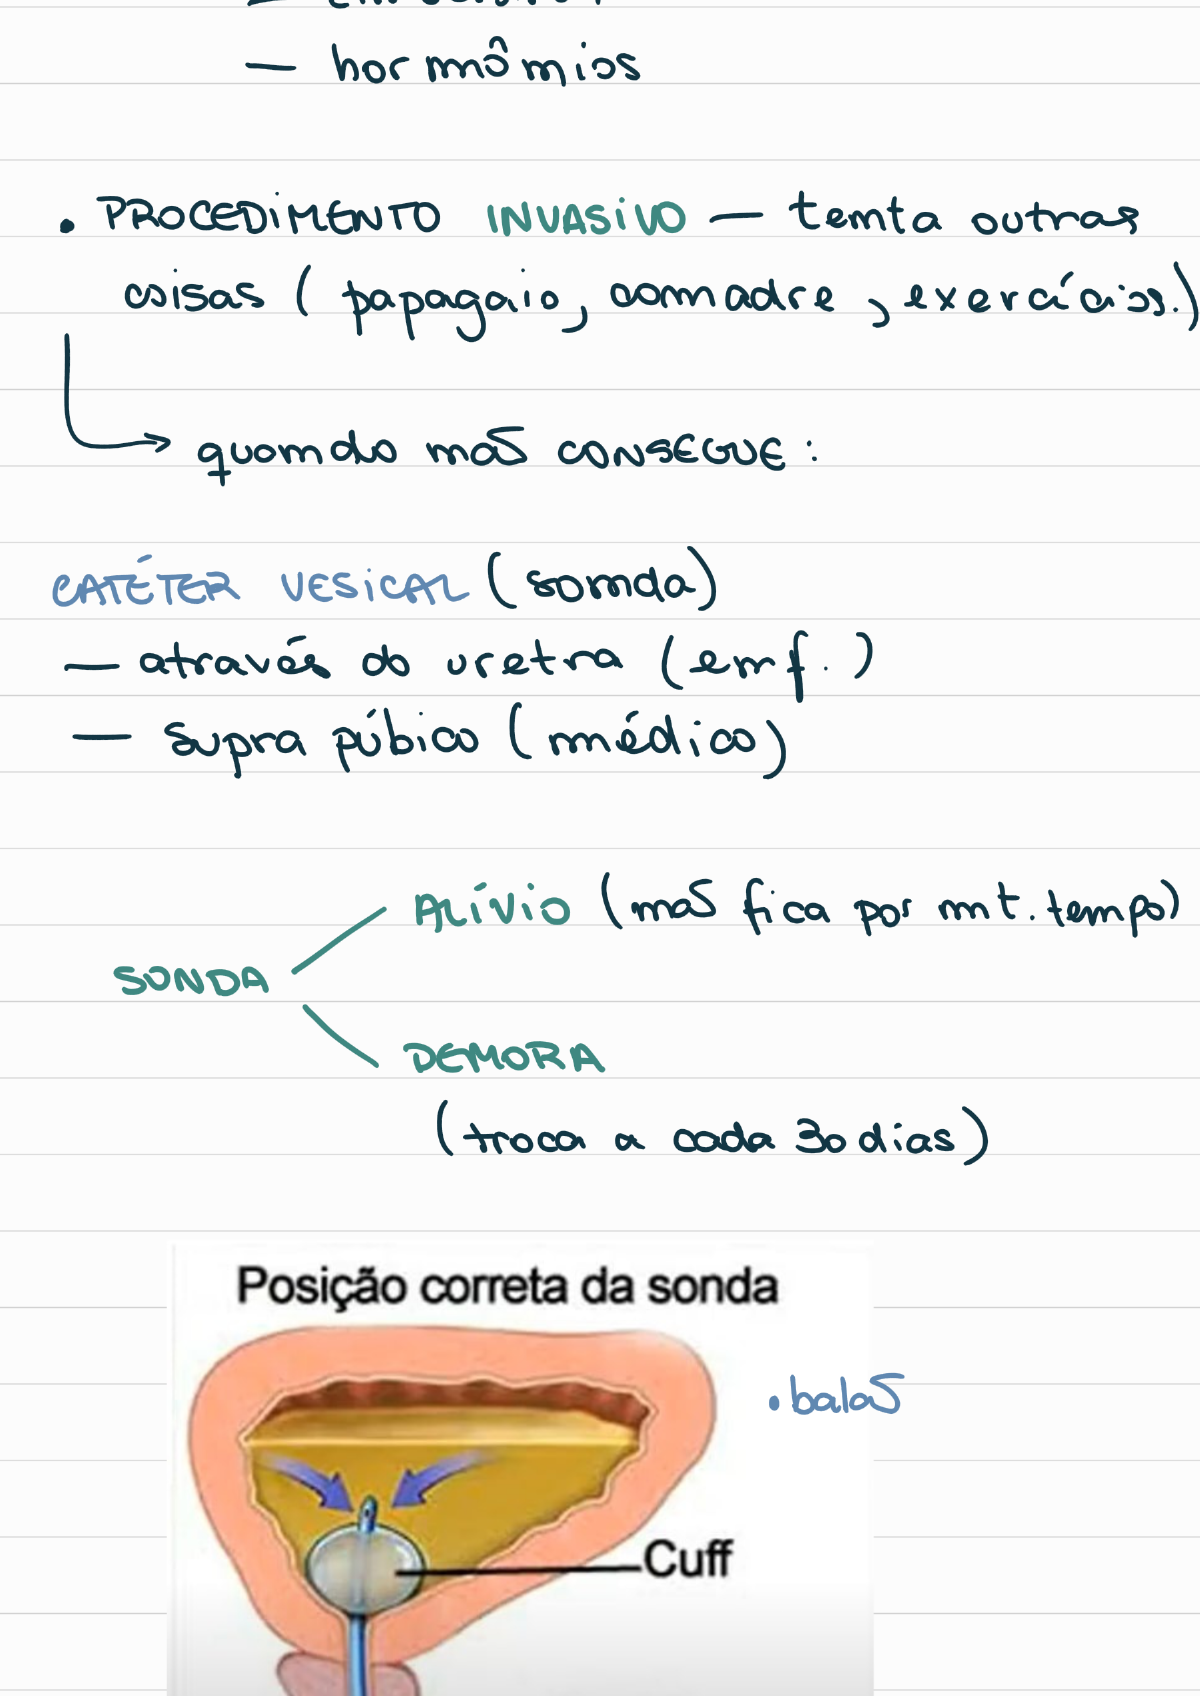 — hormônios
• PROCEDIMENTO INVASIVO — tenta outras
coisas ( papagaio, comadre, exercícios.)
quando não CONSEGUE :
CATÉTER VESICAL (sonda)
— através da uretra (enf. )
— Supra púbico (médico)
ALÍVIO (não fica por mt. tempo)
SONDA
DEMORA
(troca a cada 30 dias)
Posição correta da sonda
• balão
Cuff